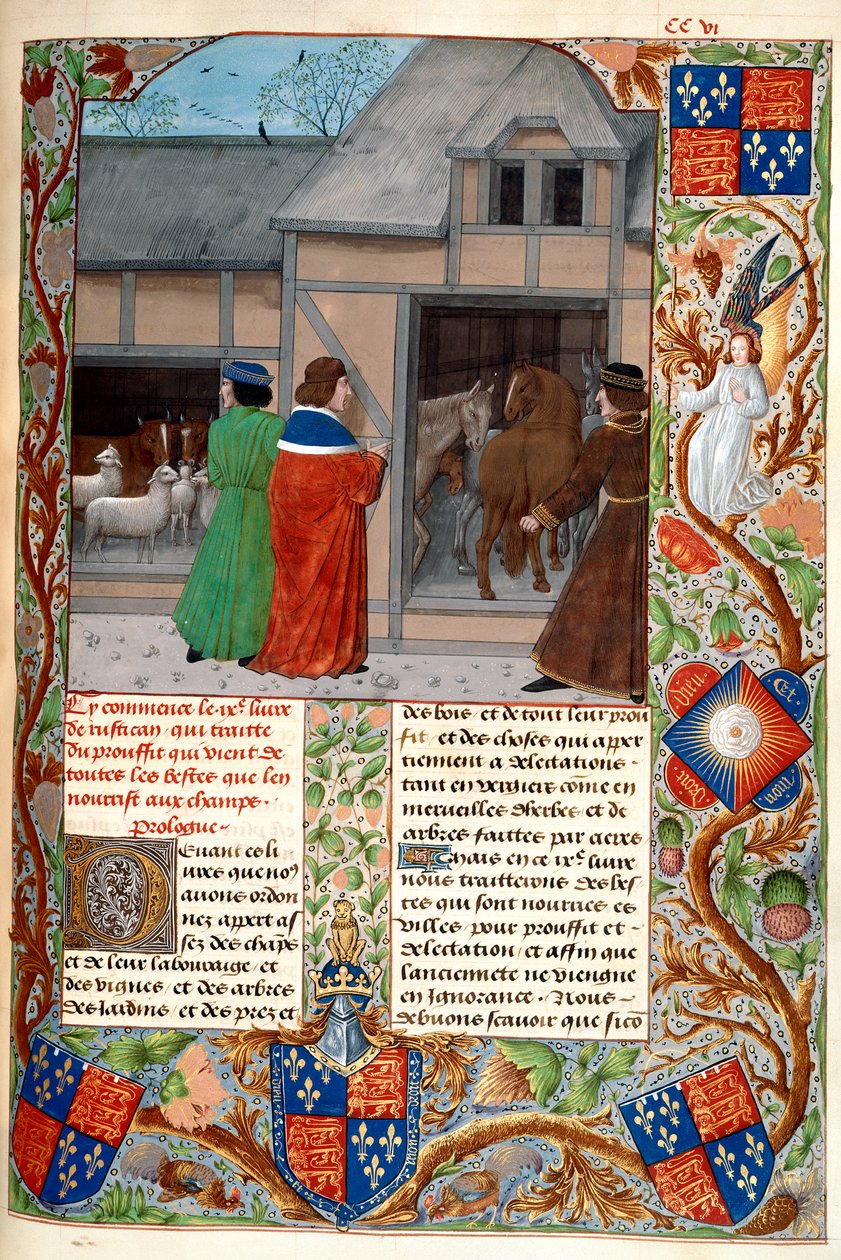 CC vi
Cy commence le .ix.e liure
de rustican . qui traitte
du prouffit qui vient de
toutes les bestes que len
nourrist aux champs .
Prologue .
Deuant ces li
ures que no9
auons ordon
nez appert as
sez des chaps
et de leur labouraige / et
des vignes / et des arbres
des Jardins / et des prez et
des bois / et de tout leur prou
fit . et des choses qui apper
tiennent a delectations .
tant en vergiers come en
merueilles dherbes / et de
arbres faittes par acres
Mais en ce ix.e liure
nous traitterons des bes
tes qui sont nourries es
villes / pour prouffit et
delectation / et affin que
lanciennete ne viengne
en Jgnorance . Nous
deuons scauoir que sico
Dieu
Et
Droit
mon
Dieu
et
mon
droit